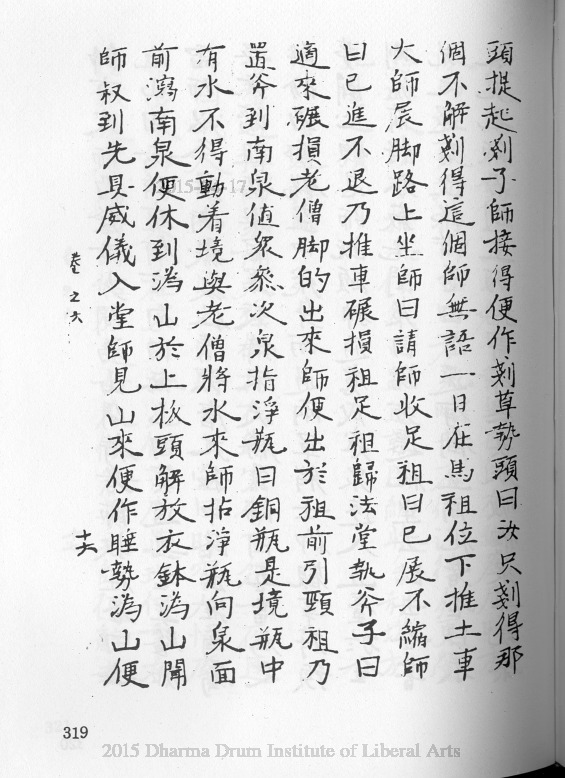 頭提起剗子師接得便作剗草勢頭曰汝只剗得那
個不解剗得這個師無語一日在馬祖位下推土車
大師展脚路上坐師曰請師收足祖曰已展不縮師
曰已進不退乃推車碾損祖足祖歸法堂執斧子曰
適來碾損老僧脚的出來師便出於祖前引頸祖乃
置斧到南泉值衆叅次泉指淨瓶曰銅瓶是境瓶中
有水不得動着境與老僧將水來師拈淨瓶向泉面
前瀉南泉便休到溈山於上板頭解放衣鉢溈山聞
師叔到先具威儀入堂師見山來便作睡勢溈山便
卷之六
十六
319
2015 Dharma Drum Institute of Liberal Arts